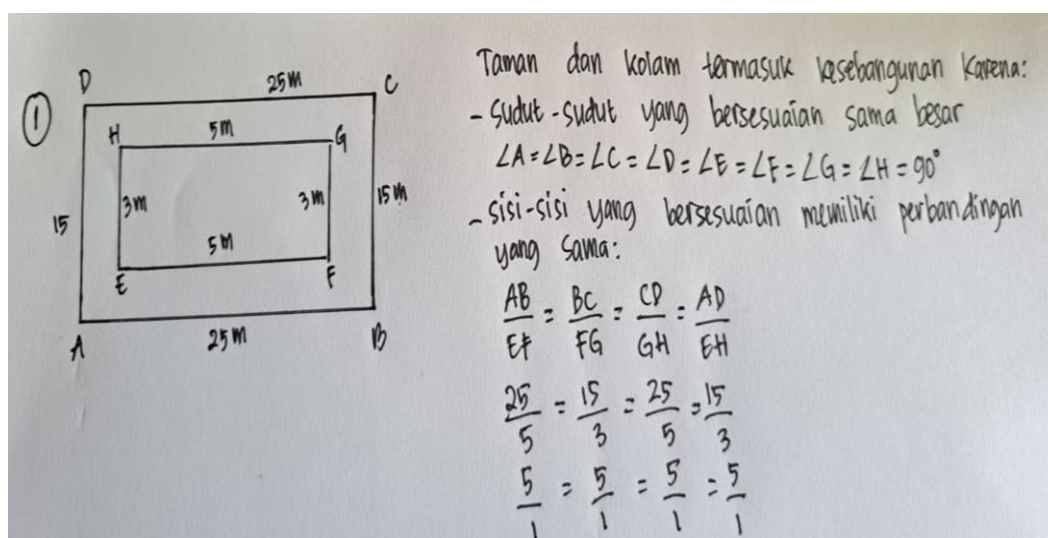 ①
D 25m C
H 5m G
15 3m 3m 15m
5m
E F
A 25m B
Taman dan kolam termasuk kesebangunan karena:
- Sudut-sudut yang bersesuaian sama besar
∠A=∠B=∠C=∠D=∠E=∠F=∠G=∠H=90°
- sisi-sisi yang bersesuaian memiliki perbandingan
yang sama:
AB/EF = BC/FG = CD/GH = AD/EH
25/5 = 15/3 = 25/5 = 15/3
5/1 = 5/1 = 5/1 = 5/1